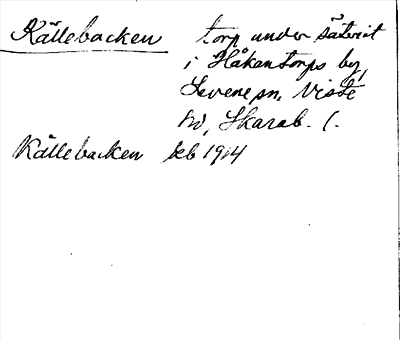 Källebacken torp under säteriet
i Håkantorps by,
Levene sn, Viste
hd, Skarab. l.
Källebacken kb 1914